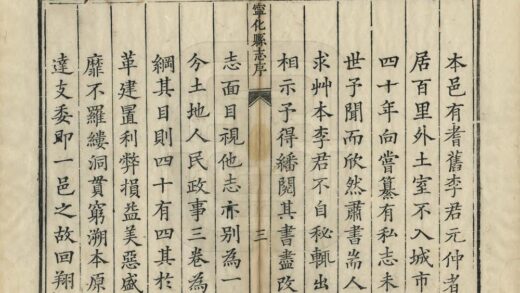 本邑有耆舊李君元仲者
居百里外土室不入城市
四十年向嘗纂有私志未
世予聞而欣然肅書耑人
求艸本李君不自秘輒出
相示予得繙閱其書盡改
寧化縣志序
三
志面目視他志亦別為一
今土地人民政事三卷為
綱其目則四十有四其於
革建置利弊損益美惡盛
靡不羅縷洞貫窮溯本原
達支委即一邑之故回翔